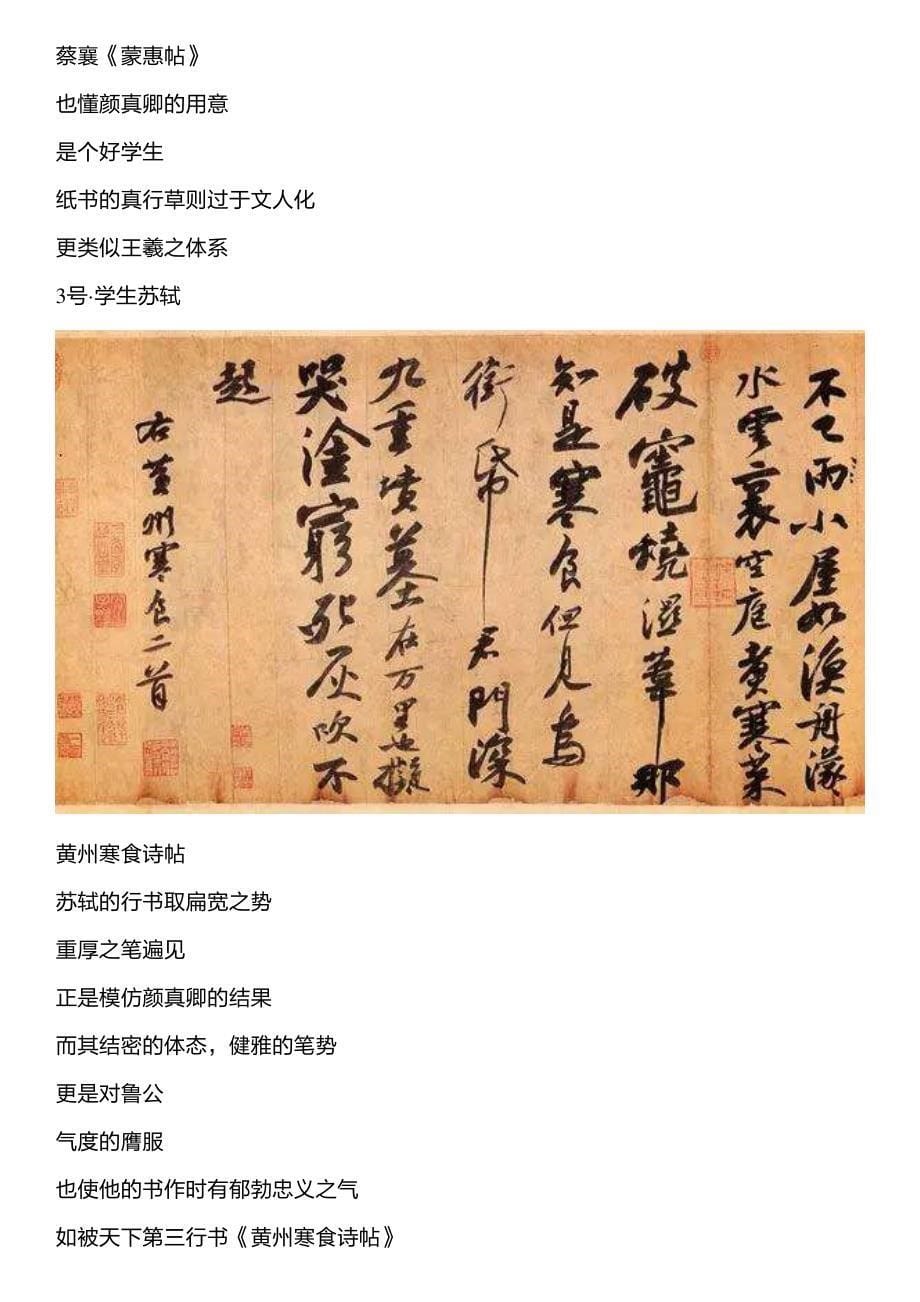 蔡襄《蒙惠帖》
也懂颜真卿的用意
是个好学生
纸书的真行草则过于文人化
更类似王羲之体系
3号·学生苏轼
不已雨小屋如漁舟濛〻
水雲裏空庖煮寒菜
破竈燒濕葦那
知是寒食但見烏
銜帋君門深
九重墳墓在万里也擬
哭塗窮死灰吹不
起
右黄州寒食二首
黄州寒食诗帖
苏轼的行书取扁宽之势
重厚之笔遍见
正是模仿颜真卿的结果
而其结密的体态，健雅的笔势
更是对鲁公
气度的膺服
也使他的书作时有郁勃忠义之气
如被天下第三行书《黄州寒食诗帖》